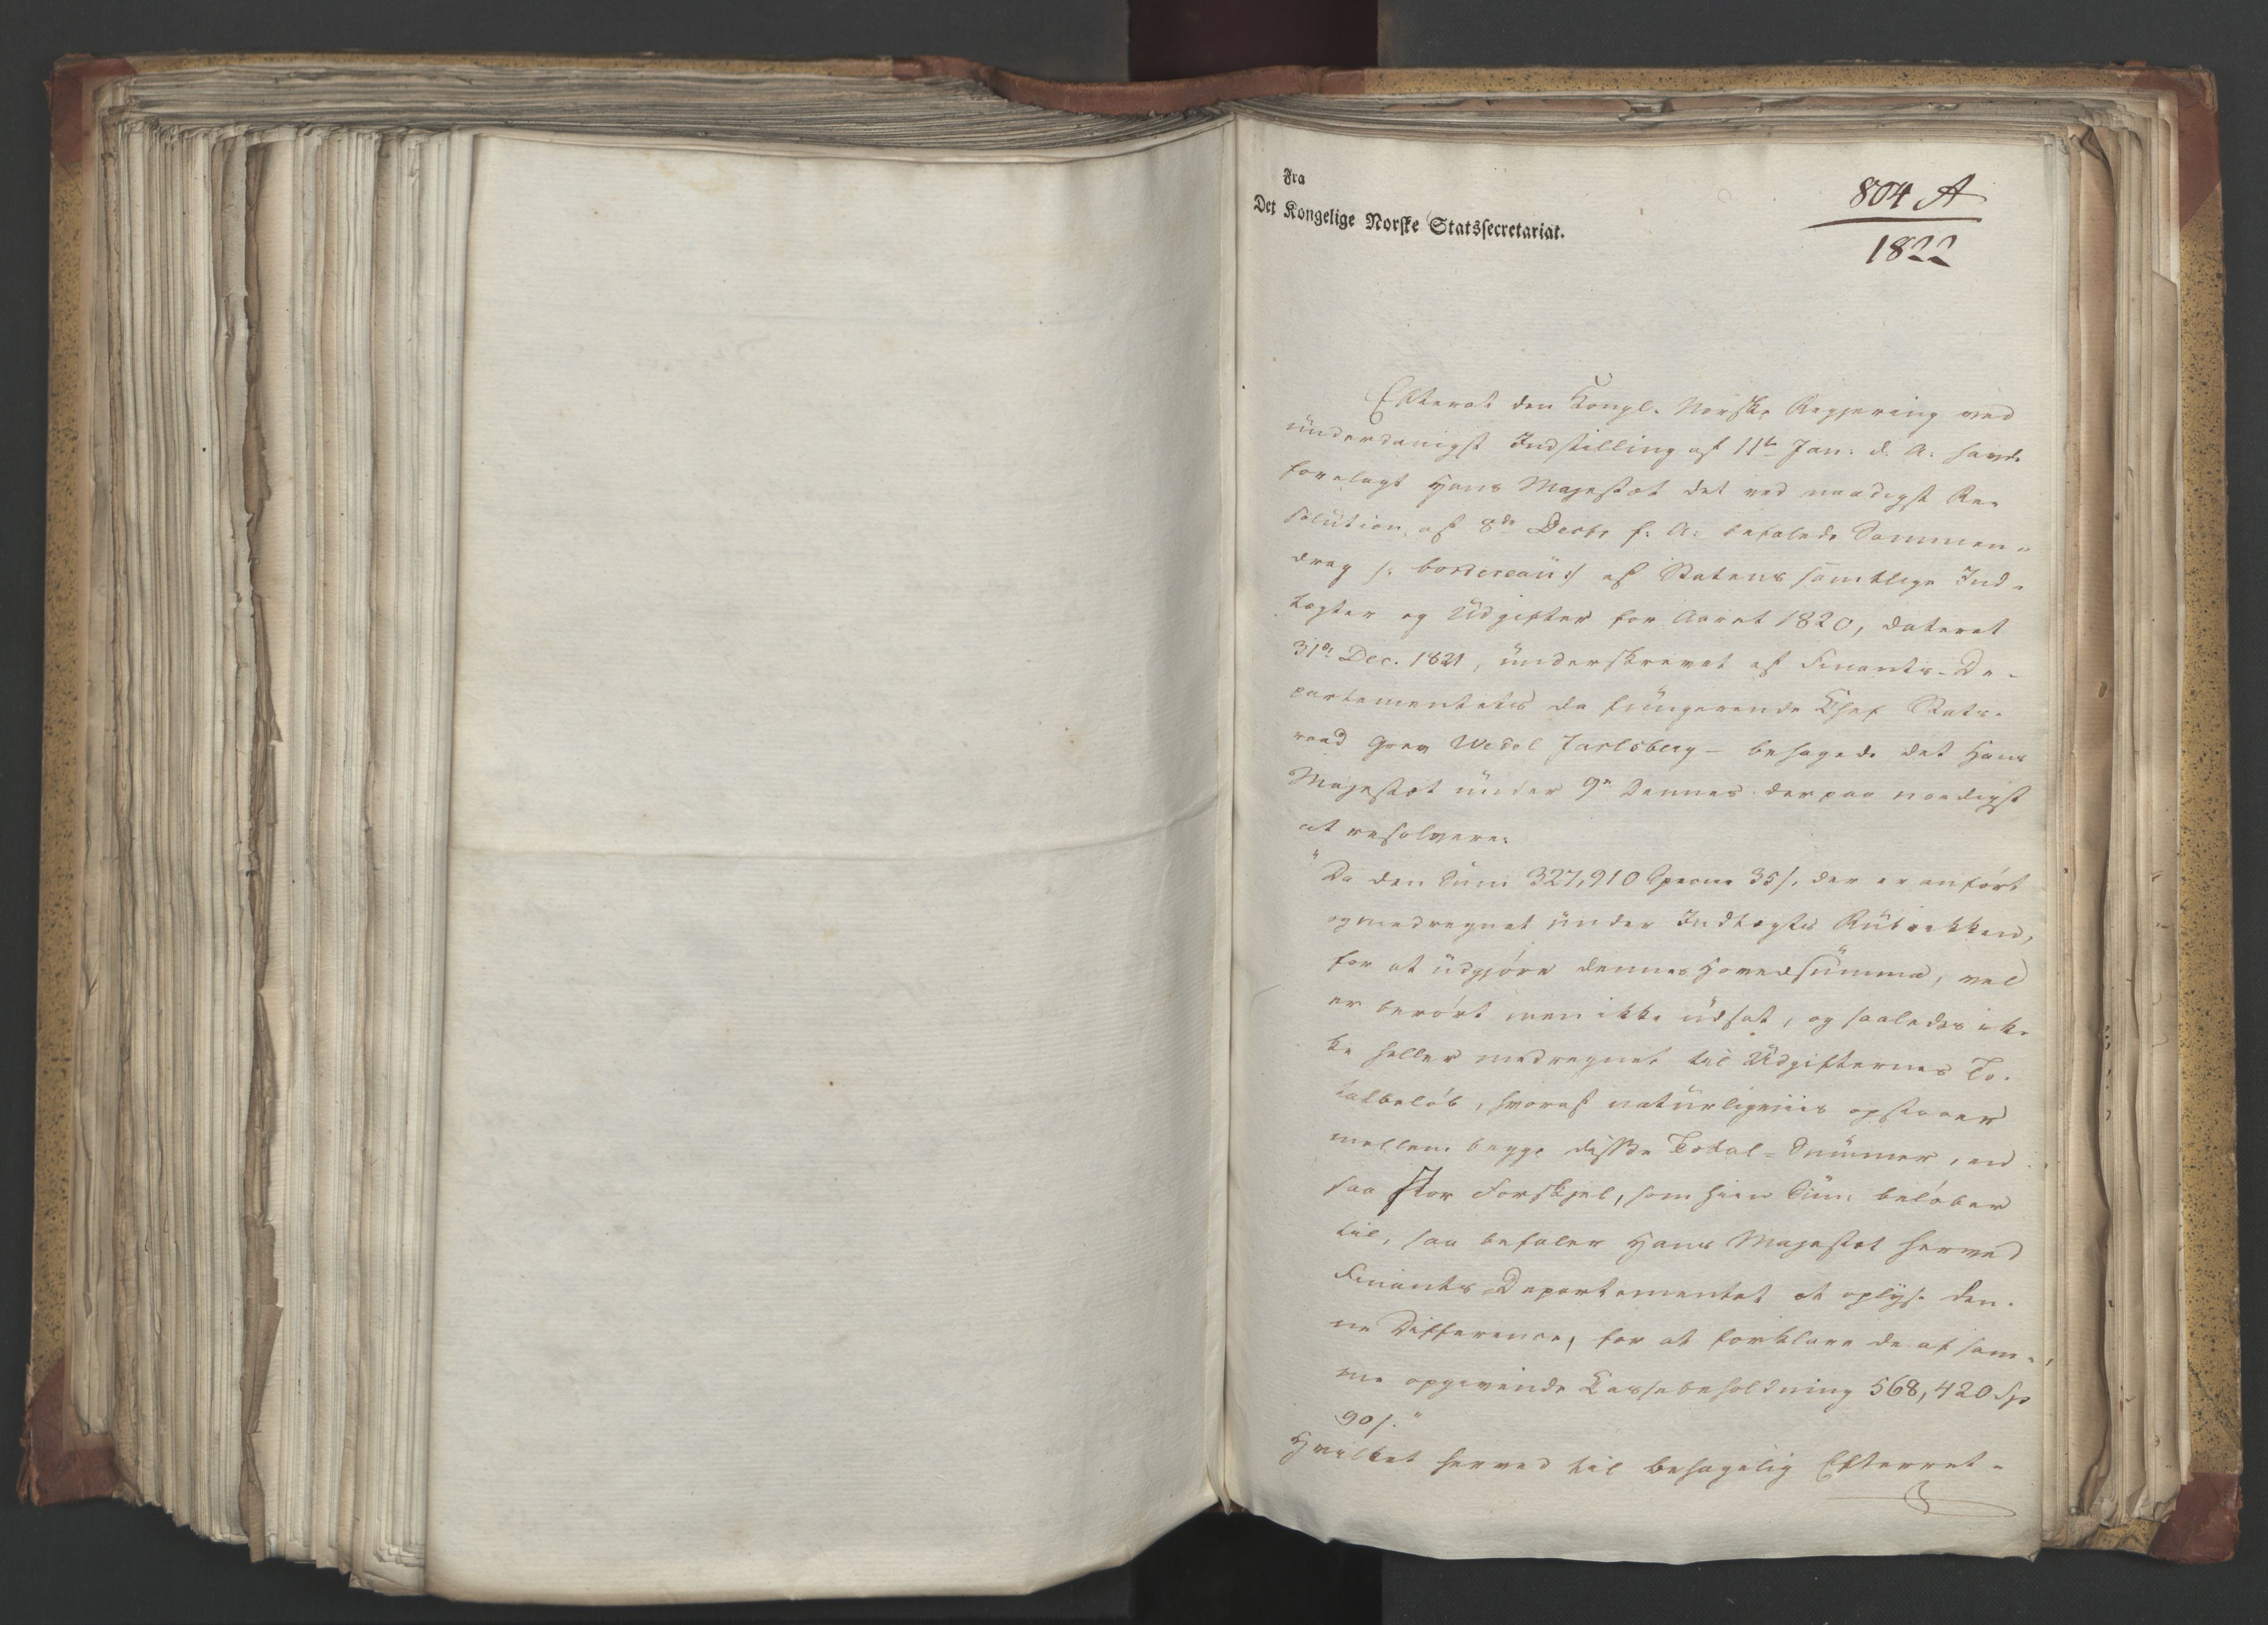 Fra
Det Kongelige Norske Statssecretariat.
804 A
1822
Efterat den Kongl. Norske Regjering ved
underdanigst Indstilling af 11te Jan: d. A: havde
forelagt Hans Majestæt det ved naadigst Re-
solution af 8de Decbr f: A: befalede Sammen-
drag /: bordereau :/ af Statens samtlige Ind-
tægter og Udgifter for Aaret 1820, dateret
31te Dec. 1821, underskrevet af Finants-De-
partementets da fungerende Chef Stats-
raad Grev Wedel Jarlsberg - behagede det Hans
Majestæt under 9de dennes derpaa naadigst
at resolvere:
"Da den Sum 327,910 Specier 35 s. der er anført
og medregnet under Indtægts Rubrikken,
for at udgjøre dennes Hovedsumma, vel
er berørt men ikke udsat, og saaledes ik-
ke heller medregnet til Udgifternes To-
talbeløb, hvoraf naturligviis opstaaer
mellem begge disse Total-Summer, en
saa stor Forskjel, som hiin Sum beløber
til, saa befaler Hans Majestæt herved
Finants-Departementet at oplyse den-
ne Difference, for at forklare de af sam-
me opgivende Cassebeholdning 568,420 Sp
90 s."
Hvilket herved til behagelig Efterret-